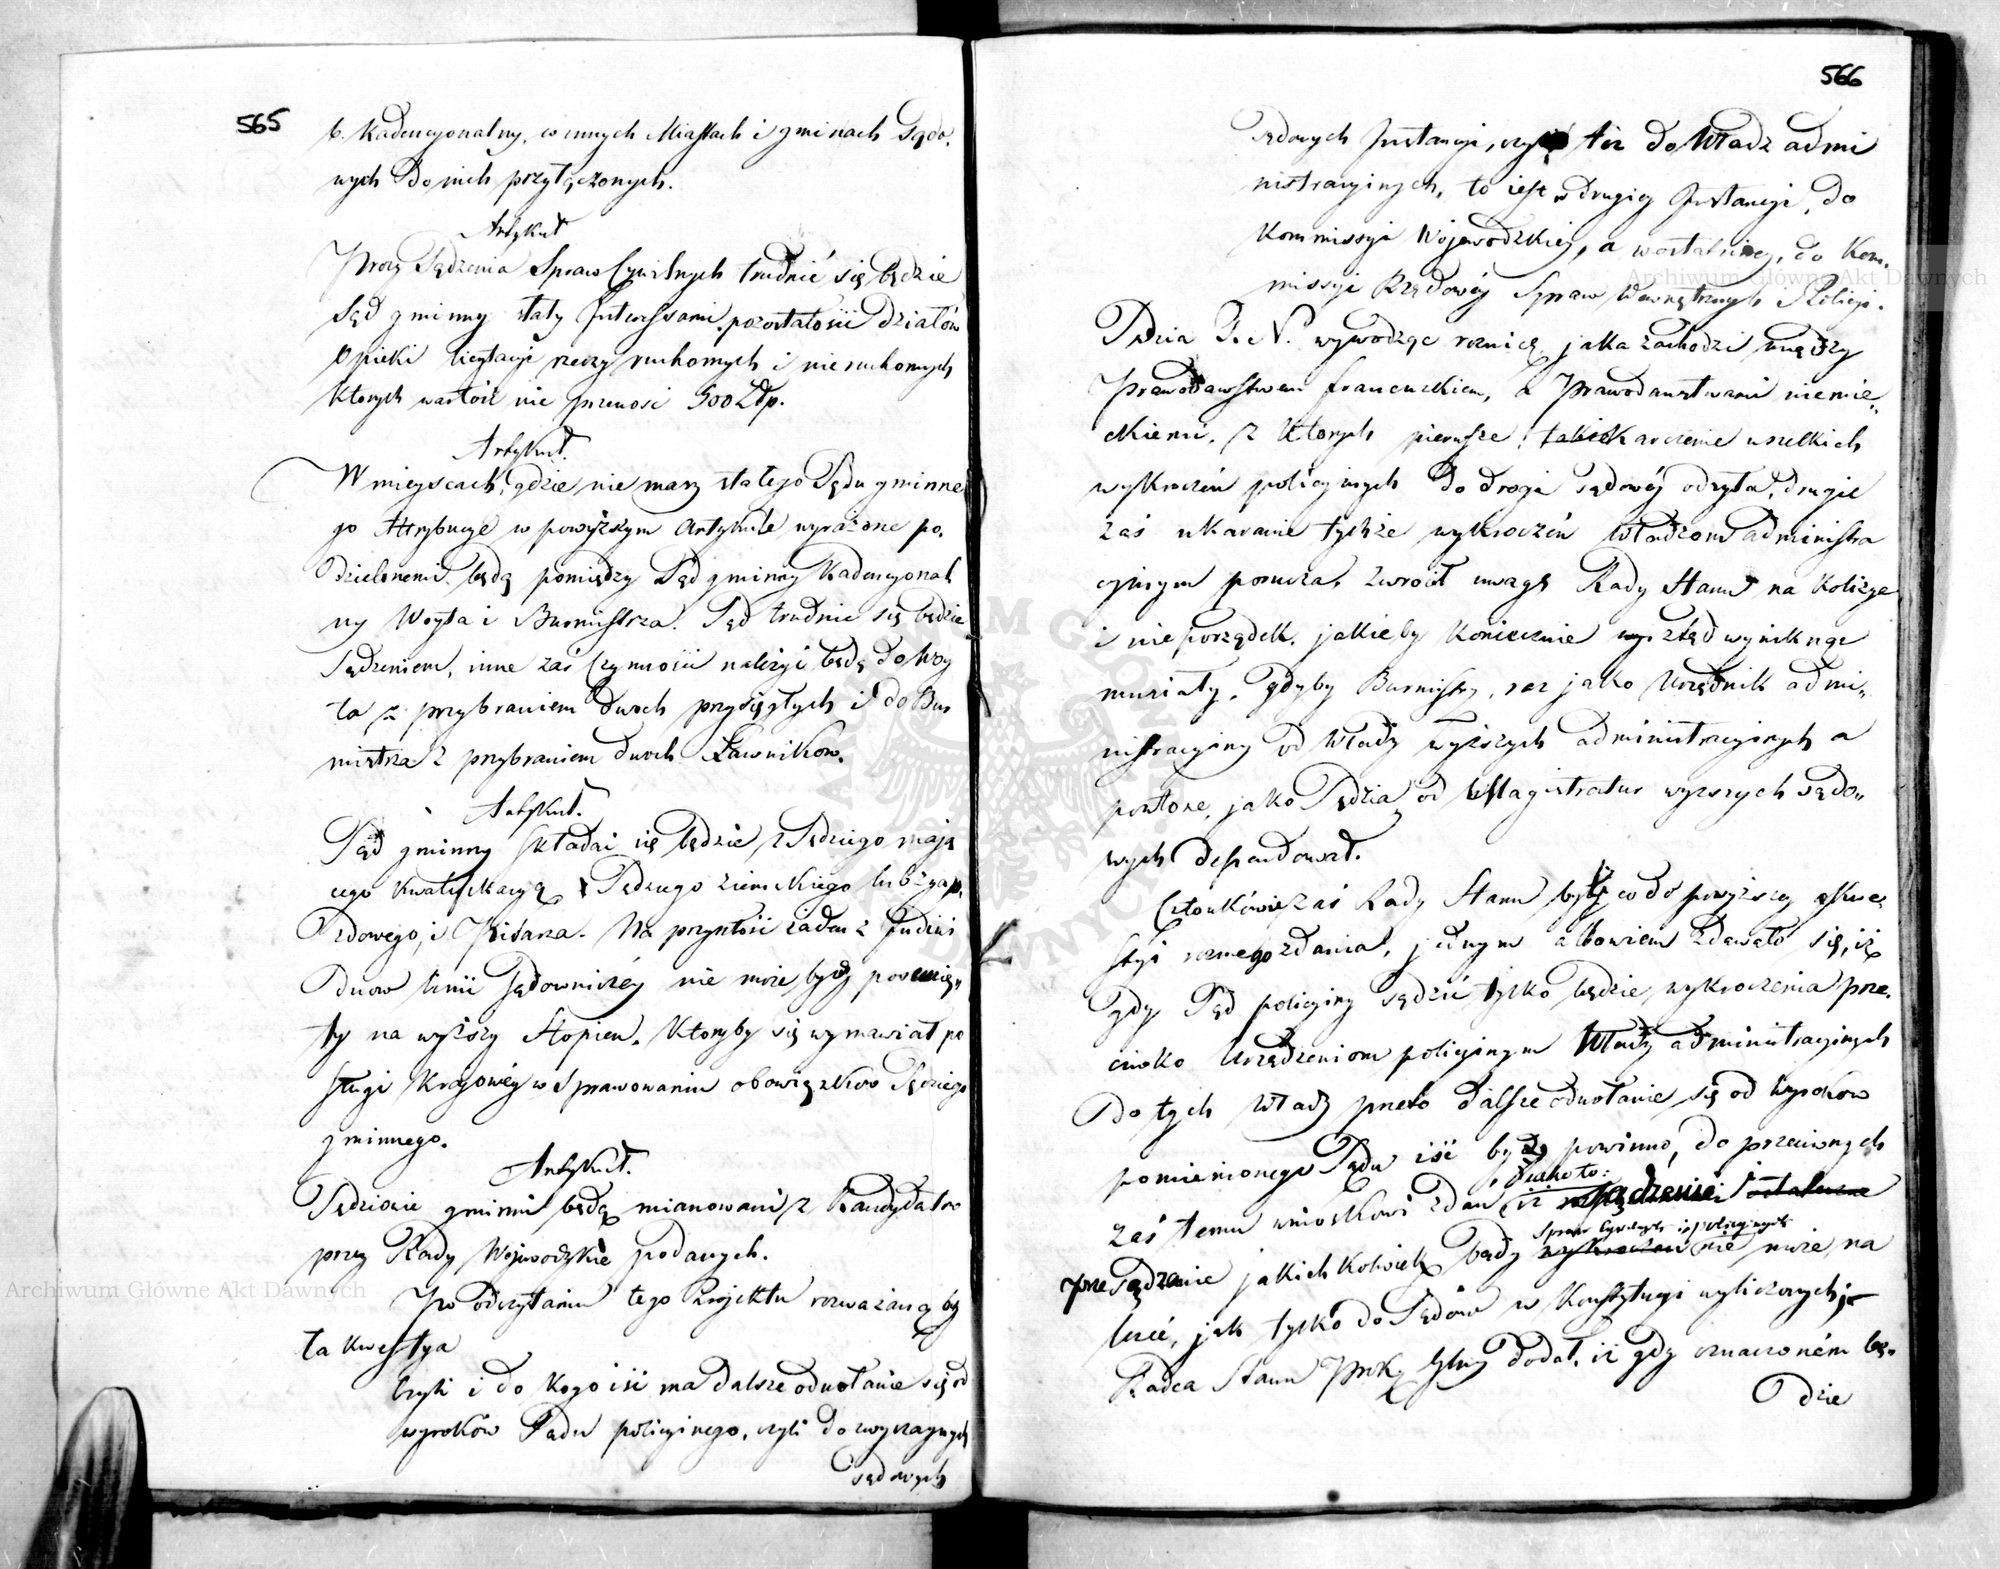 565
b. Kadencyonalny, w innych Miastach i gminach Sądo-
wych do nich przyłączonych.
Artykuł
Prócz Sądzenia Spraw Cywilnych trudnić się będzie
Sąd gminny stały Interessami pozostałości działów
Opieki licytacyi rzeczy ruchomych i nieruchomych
których wartość nie przenosi 500 Złp.
Artykuł.
W mieyscach, gdzie nie masz stałego Sądu gminne
go Attrybucye w powyższym Artykule wyrażone po-
dzielonemi będą pomiędzy Sąd gminny Kadencyonal
ny Woyta i Burmistrza. Sąd trudnić się będzie
Sądzeniem, inne zaś czynności należyć będą do Woy
ta z przybraniem dwóch przysięgłych i do Bur
mistrza z przybraniem dwóch Ławników.
Artykuł.
Sąd gminny składać się będzie z Sędziego mają
cego kwalifikacyą Sędziego ziemskiego lub zjaz-
dowego, i Pisarza. Na przyszłość żaden z Indiwi
duów linii Sądowniczéy nie może być posunię-
ty na wyższy Stopień. Któryby się wymawiał po
sługi Kraiowéy w Sprawowaniu obowiązków Sędziego
gminnego.
Artykuł.
Sędziowie gminni będą mianowani z Kandydatów
przez Rady Wojewódzkie podanych.
Po odczytaniu tego Projektu rozważaną by
ła kwestya
Czyli i do kogo iść ma dalsze odwołanie się od
wyroków Sądu policyinego, czyli do zwyczaynych
sądowych
566
Sądowych Instancyi, czyli też do Władz admi
nistracyinych, to iest w drugiey Instancyi, do
Kommissyi Wojewódzkiey, a w ostatniey, do Kom-
missyi Rządowéy Spraw Wewnętrznych i Policyi.
Sędzia T. N. wywodząc różnicę jaka zachodzi między
Prawodawstwem francuzkiem, a Prawodawstwami niemie-
ckiemi, z których pierwsze karcenie wszelkich
wykroczeń policyinych do drogi sądowéy odsyła, drugie
zaś ukaranie tychże wykroczeń Władzom administra
cyinym porucza, zwrócił uwagę Rady Stanu na kolizye
i nieporządek, jakieby koniecznie ztąd wyniknąć
musiały, gdyby Burmistrz, raz jako Urzędnik admi-
nistracyiny od Władz wyższych administracyinych a
powtóre, jako Sędzia od Magistratur wyższych sądo-
wych dependował.
Członkowie zaś Rady Stanu byli co do powyższey kwe-
styi różnego zdania, jednym albowiem zdawało się, iż
gdy Sąd policyiny sądzić tylko będzie wykroczenia prze-
ciwko Urządzeniom policyinym Władz administracyinych
Do tych Władz przeto dalsze odwołanie się od wyroków
pomienionego Sądu iść by powinno, do przeciwnych
zaś temu wniosków zdań, iż
Spraw Cywilnych i policyinych
przesądzanie jakichkolwiek bądź nie może na
leżeć, jak tylko do Sądów w Konstytucyi wyliczonych;
Radca Stanu Prok. Glny dodał, iż gdy oznaczoném bę-
dzie